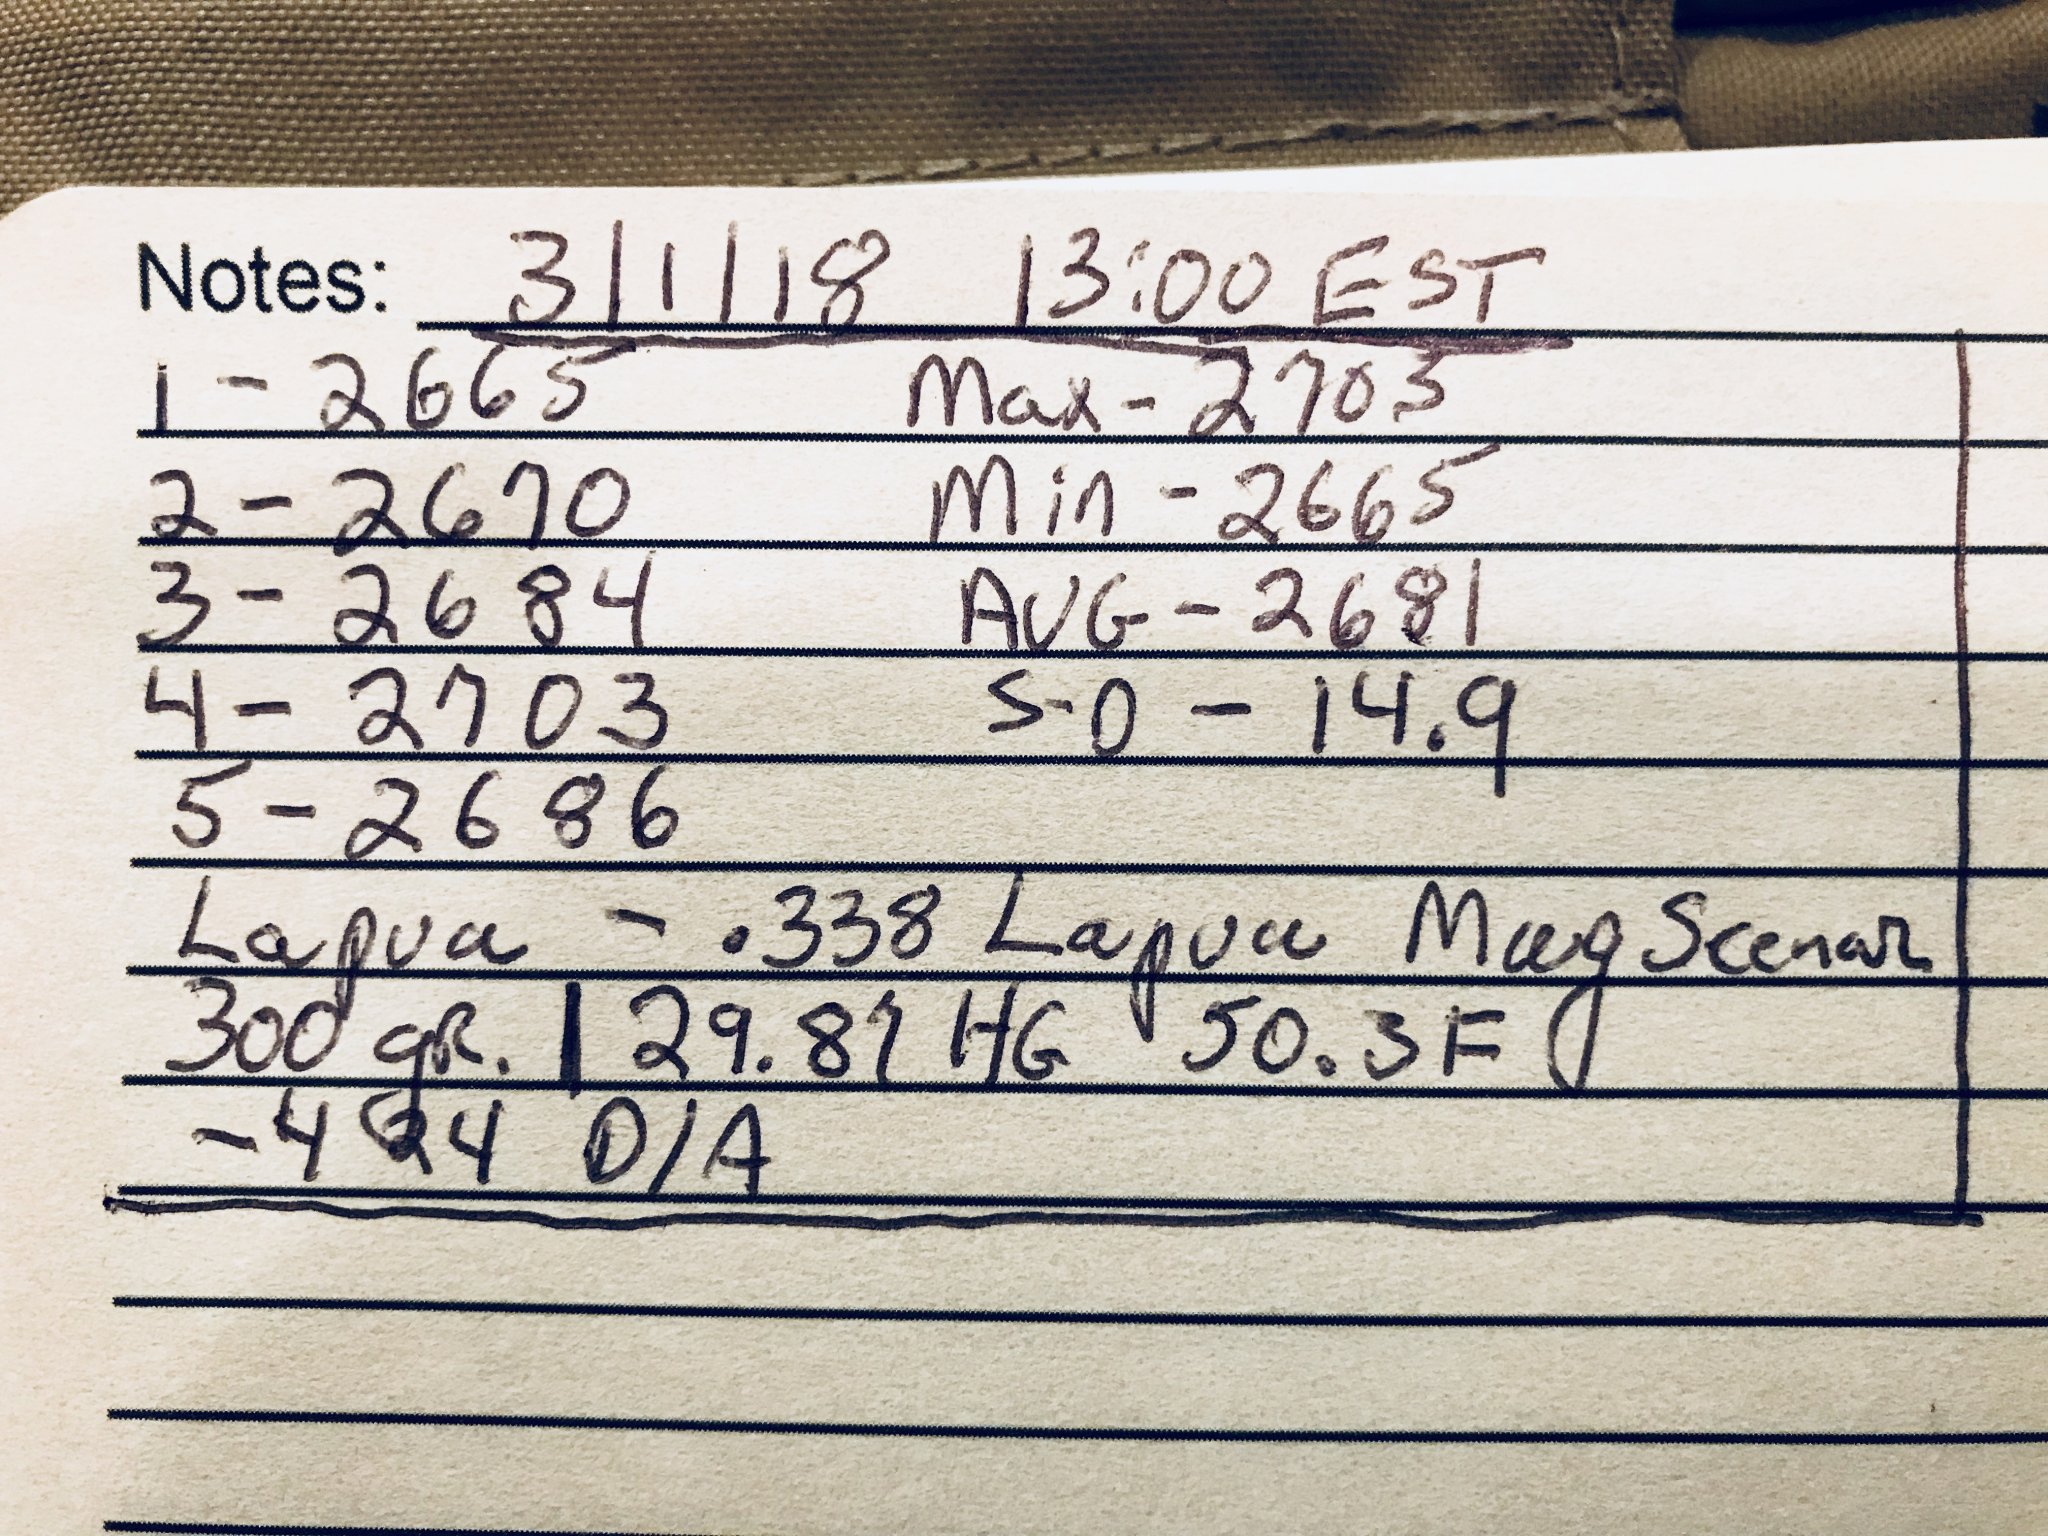 Notes: 3/1/18 13:00 EST
1 - 2665 Max - 2703
2 - 2670 Min - 2665
3 - 2684 AVG - 2681
4 - 2703 S-D - 14.9
5 - 2686
Lapua - .338 Lapua Mag Scenar
300 gR. | 29.87 HG 50.3 F
-424 D/A